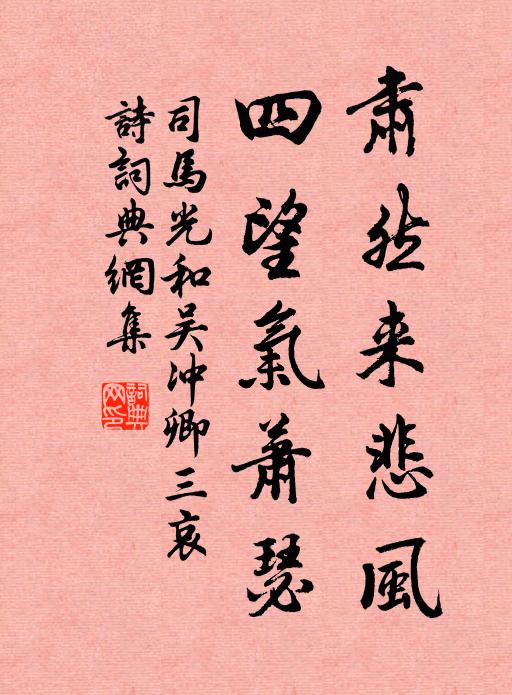 肅然来悲風
四望氣蕭瑟
司馬光和吴沖卿三哀
詩詞典網集
詞典网印